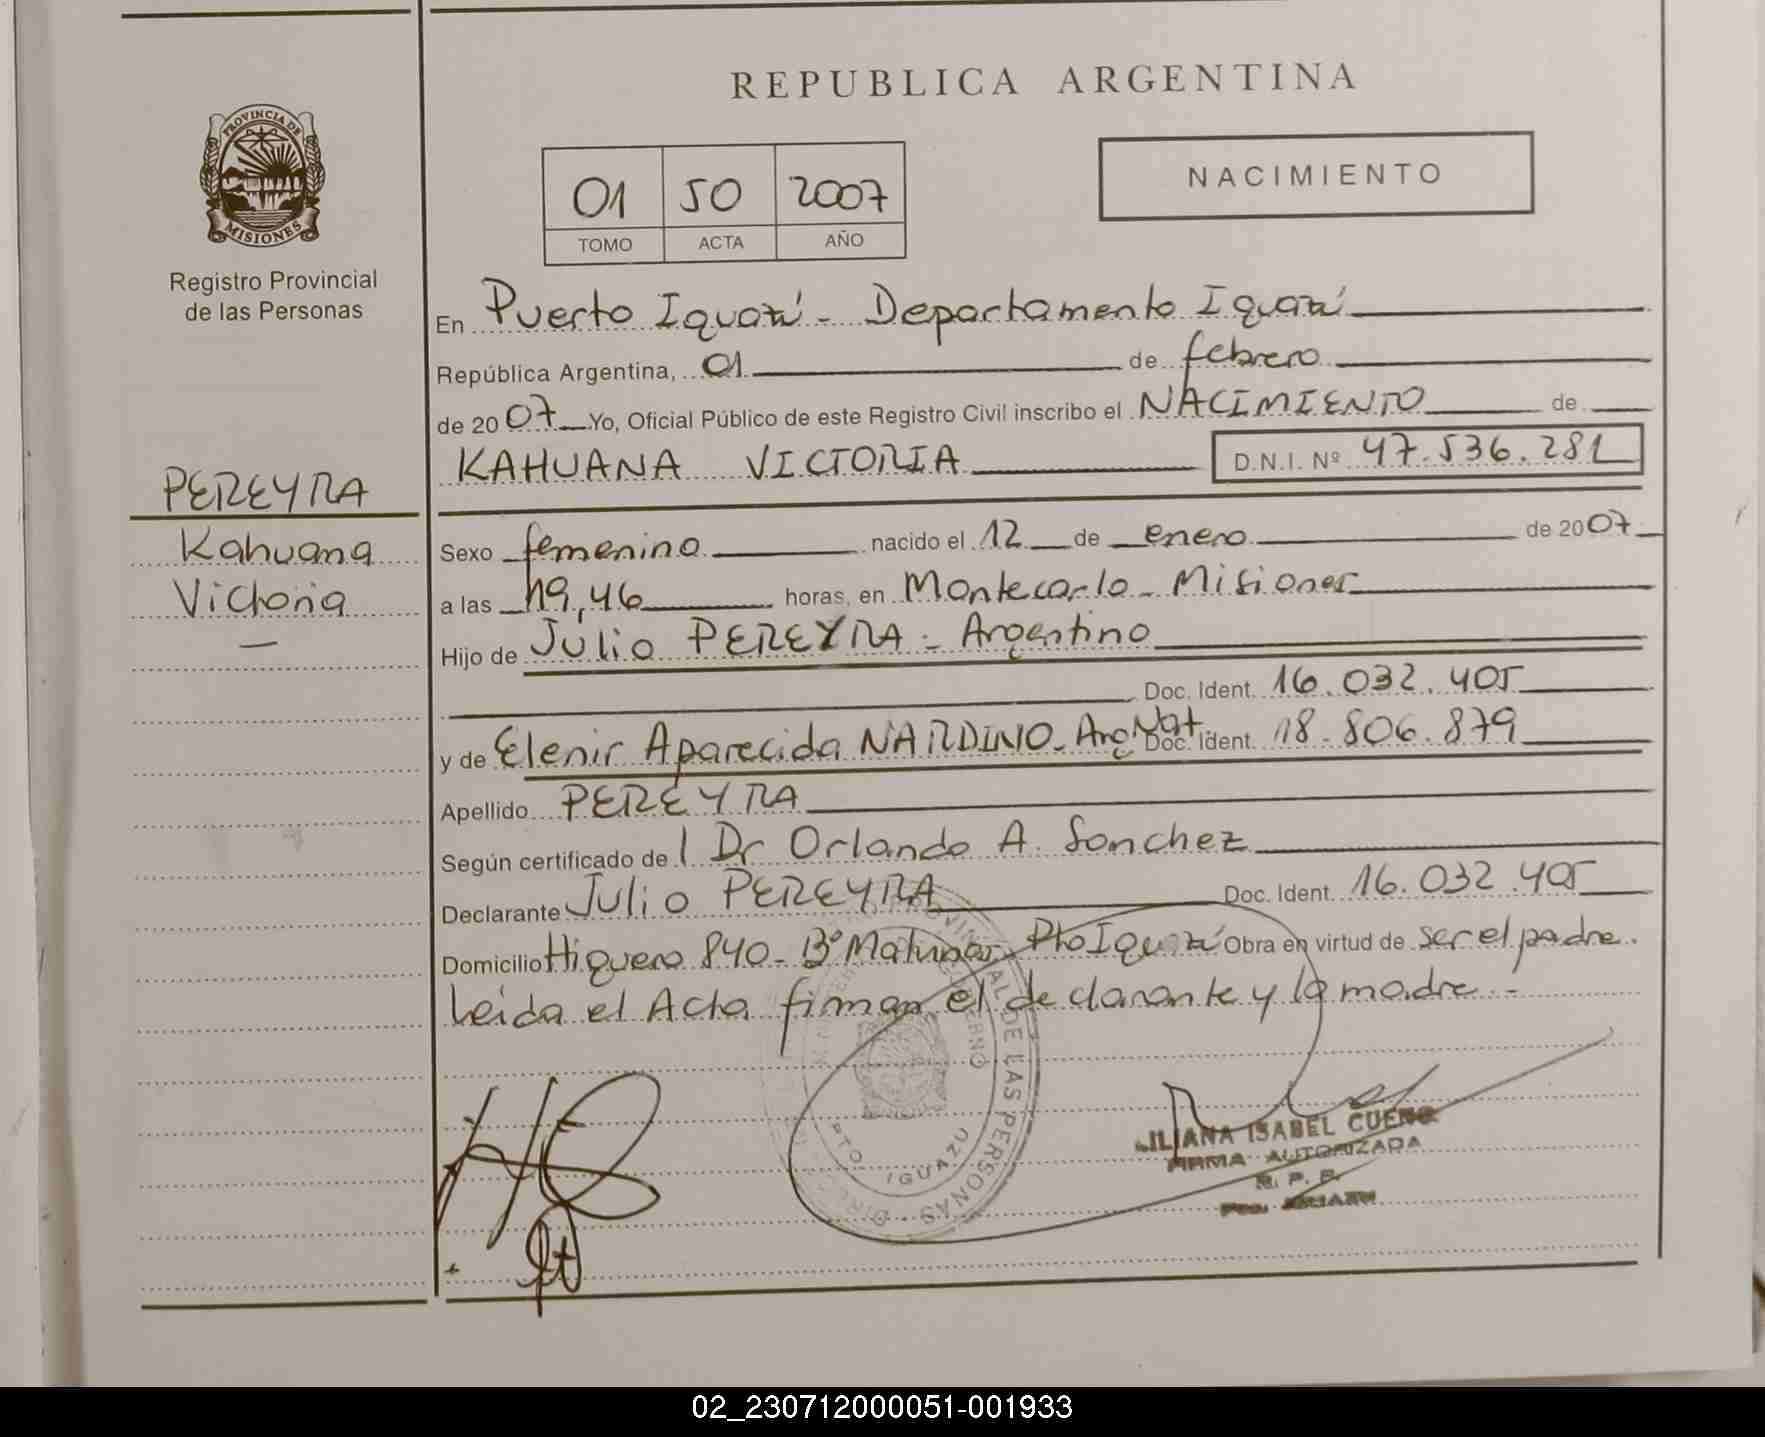 REPUBLICA ARGENTINA
PROVINCIA DE MISIONES
Registro Provincial
de las Personas
01 50 2007
TOMO ACTA AÑO
NACIMIENTO
En Puerto Iguazú - Departamento Iguazú
República Argentina, 01 de febrero
de 2007 Yo, Oficial Público de este Registro Civil inscribo el NACIMIENTO de
KAHUANA VICTORIA D.N.I. Nº 47.536.281
PEREYRA
Kahuana
Victoria
Sexo femenino nacido el 12 de enero de 2007
a las 19,46 horas, en Montecarlo - Misiones
Hijo de Julio PEREYRA - Argentino
Doc. Ident. 16.032.405
y de Elenir Aparecida NARDINO - Arg Nat. Doc. Ident. 18.806.879
Apellido PEREYRA
Según certificado de l Dr Orlando A. Sanchez
Declarante Julio PEREYRA Doc. Ident. 16.032.405
Domicilio Higuero 840 - Bº Malvinas Pto Iguazú Obra en virtud de ser el padre.
Leída el Acta firman el declarante y la madre.-
DE LAS PERSONAS
PTO IGUAZU
LILIANA ISABEL CUENO
FIRMA AUTORIZADA
R. P. P.
02_230712000051-001933